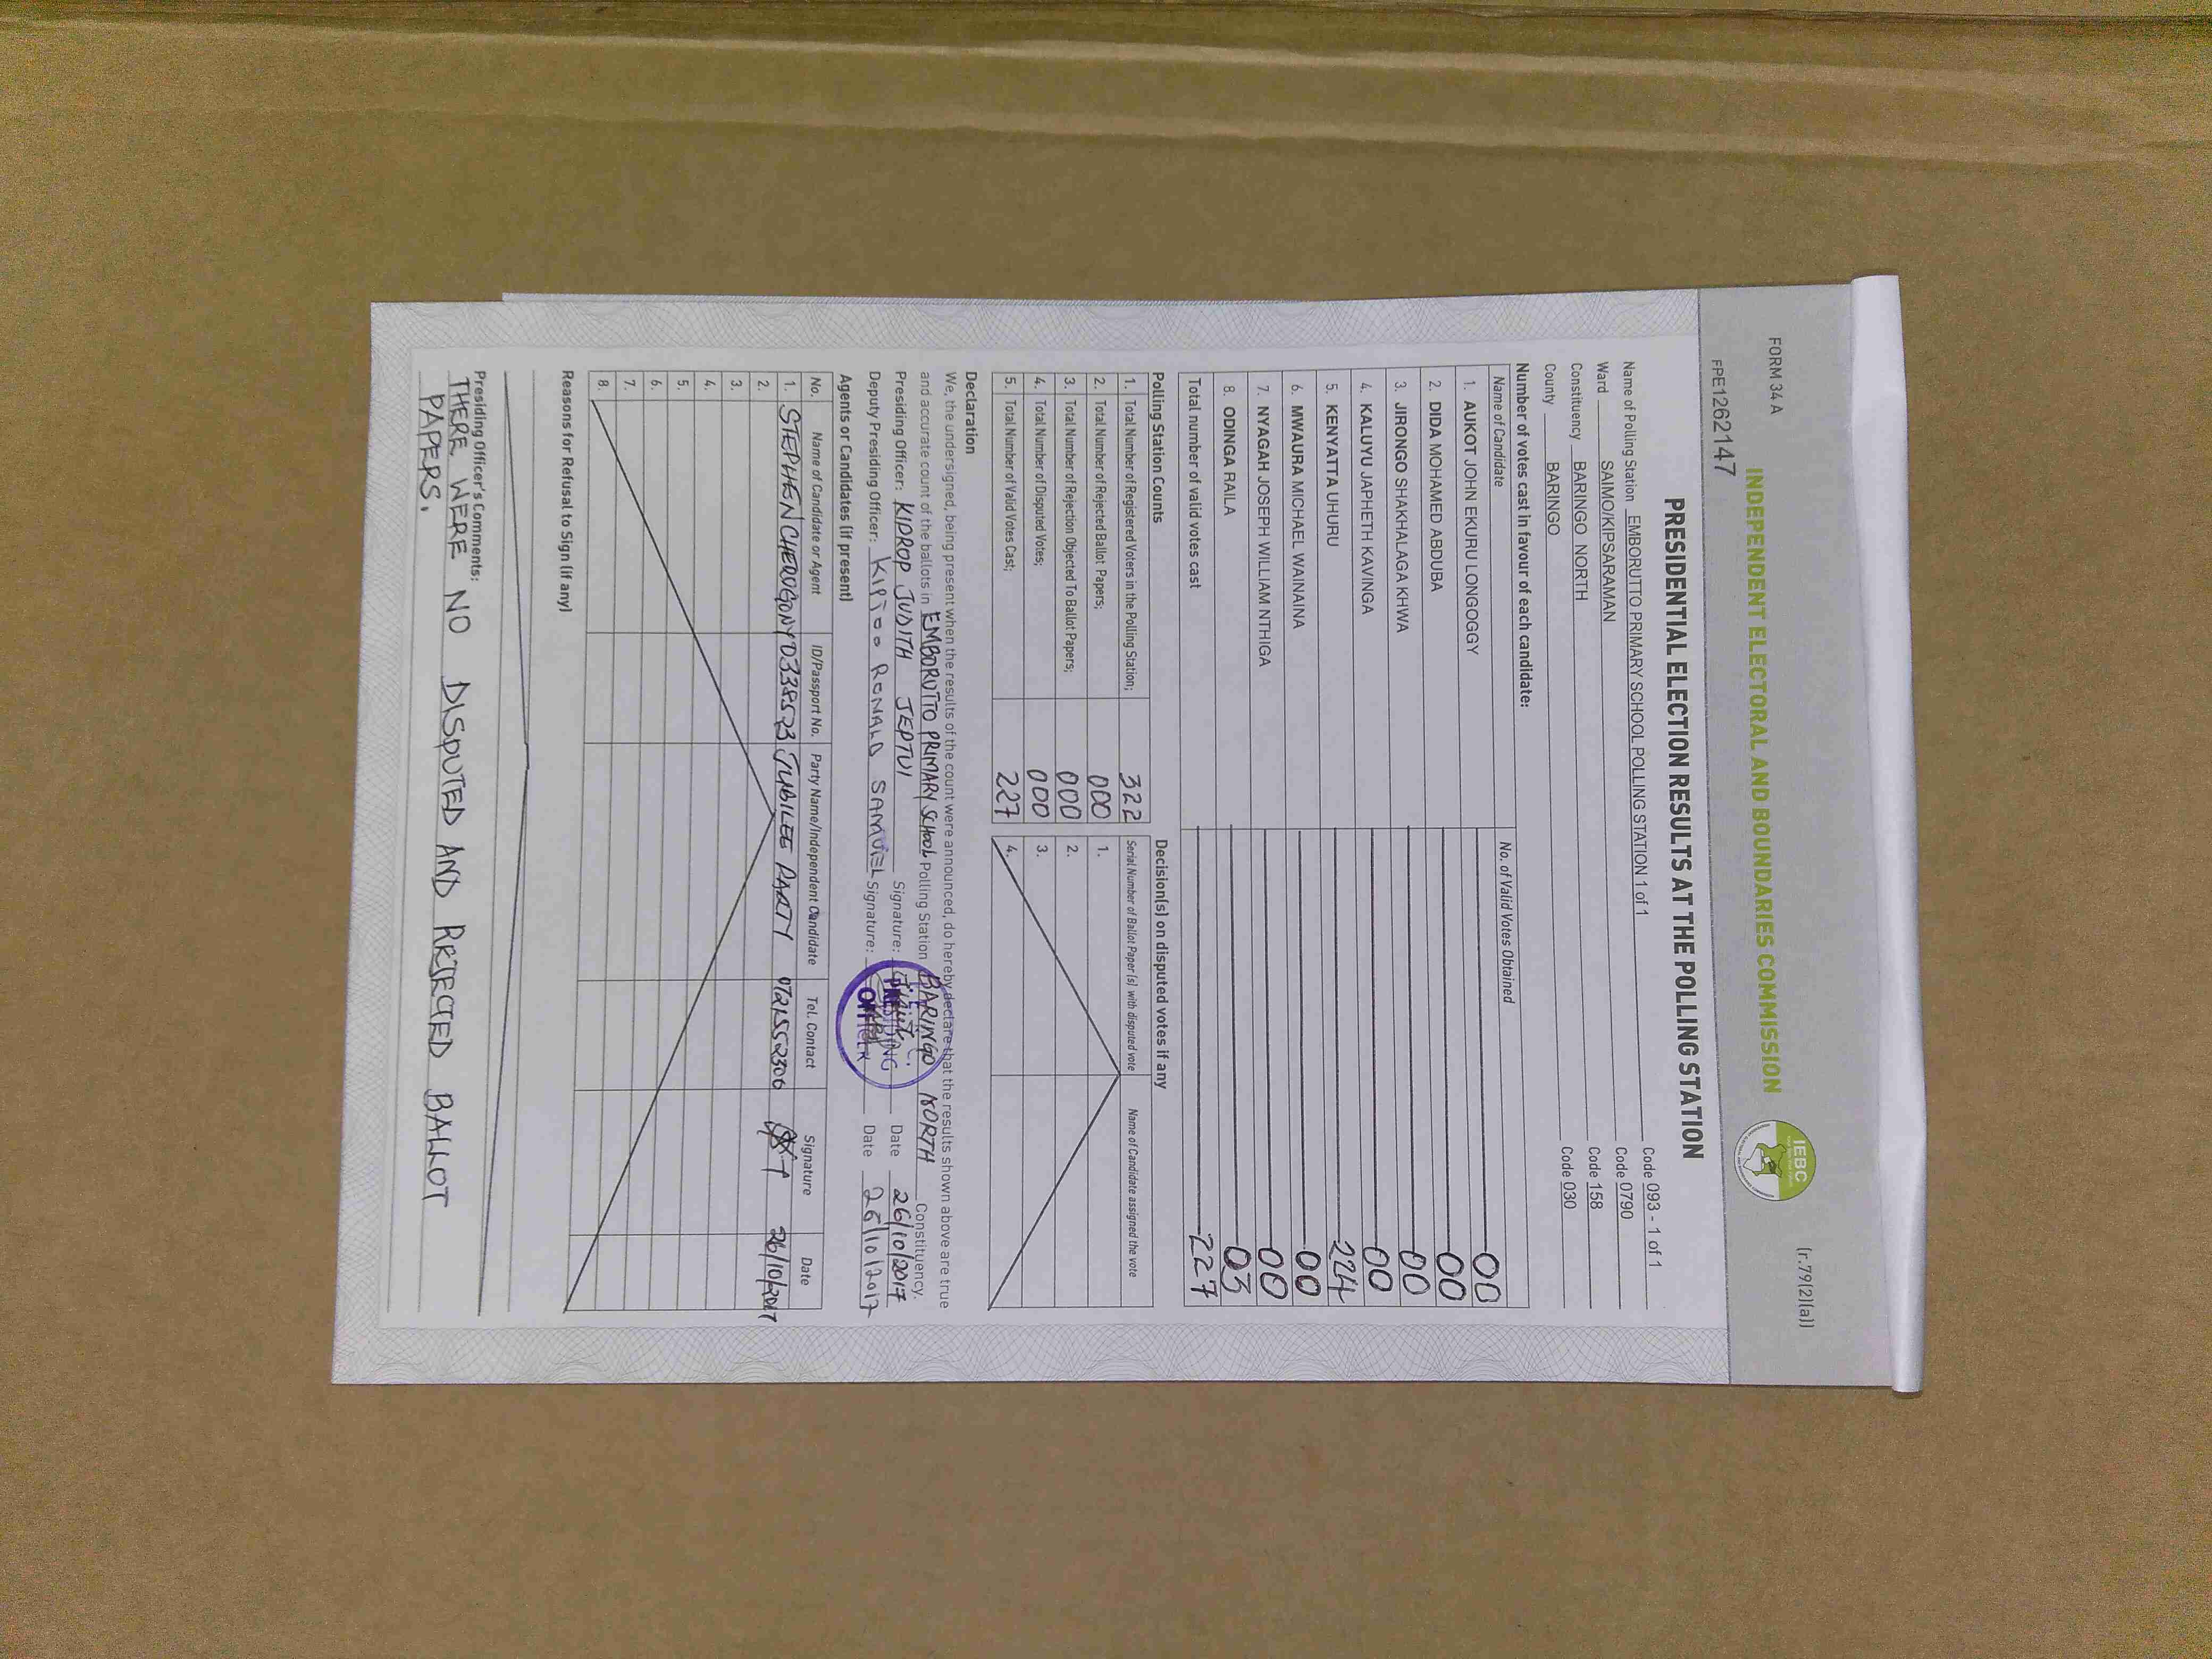 FORM 34 A
(r.79(2)(a))
INDEPENDENT ELECTORAL AND BOUNDARIES COMMISSION
IEBC
FPE1262147
PRESIDENTIAL ELECTION RESULTS AT THE POLLING STATION
Name of Polling Station EMBORUTTO PRIMARY SCHOOL POLLING STATION 1 of 1 Code 093 - 1 of 1
Ward SAIMO/KIPSARAMAN Code 0790
Constituency BARINGO NORTH Code 158
County BARINGO Code 030
Number of votes cast in favour of each candidate:
Name of Candidate No. of Valid Votes Obtained
1. AUKOT JOHN EKURU LONGOGGY 00
2. DIDA MOHAMED ABDUBA 00
3. JIRONGO SHAKHALAGA KHWA 00
4. KALUYU JAPHETH KAVINGA 00
5. KENYATTA UHURU 224
6. MWAURA MICHAEL WAINAINA 00
7. NYAGAH JOSEPH WILLIAM NTHIGA 00
8. ODINGA RAILA 03
Total number of valid votes cast 227
Polling Station Counts
1. Total Number of Registered Voters in the Polling Station; 322
2. Total Number of Rejected Ballot Papers; 000
3. Total Number of Rejection Objected To Ballot Papers; 000
4. Total Number of Disputed Votes; 000
5. Total Number of Valid Votes Cast; 227
Decision(s) on disputed votes if any
Serial Number of Ballot Paper(s) with disputed vote Name of Candidate assigned the vote
1.
2.
3.
4.
Declaration
We, the undersigned, being present when the results of the count were announced, do hereby declare that the results shown above are true
and accurate count of the ballots in EMBORUTTO PRIMARY SCHOOL Polling Station BARINGO NORTH Constituency.
Presiding Officer: KIPROP JUDITH JEPTUI Signature: Date 26/10/2017
Deputy Presiding Officer: KIPTOO RONALD SAMUEL Signature: Date 26/10/2017
PRESIDING
OFFICER
Agents or Candidates (if present)
No. Name of Candidate or Agent ID/Passport No. Party Name/Independent Candidate Tel. Contact Signature Date
1. STEPHEN CHEROGONY 0338523 JUBILEE PARTY 0721552306 26/10/2017
2.
3.
4.
5.
6.
7.
8.
Reasons for Refusal to Sign (if any)
Presiding Officer's Comments:
THERE WERE NO DISPUTED AND REJECTED BALLOT
PAPERS.